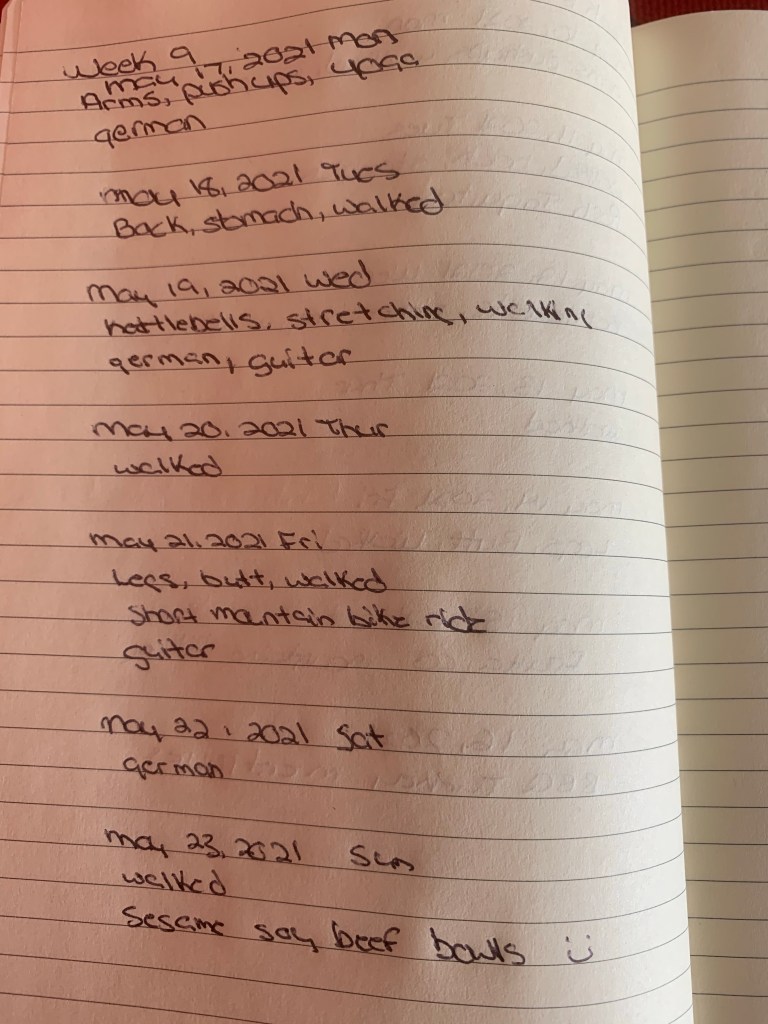 Week 9
May 17, 2021 Mon
Arms, pushups, yoga
german
May 18, 2021 Tues
Back, stomach, walked
May 19, 2021 Wed
kettlebells, stretching, walking
german, guitar
May 20, 2021 Thur
walked
May 21, 2021 Fri
Legs, butt, walked
short mantain bike ride
guitar
May 22, 2021 Sat
german
May 23, 2021 Sun
walked
Sesame soy beef bowls :)